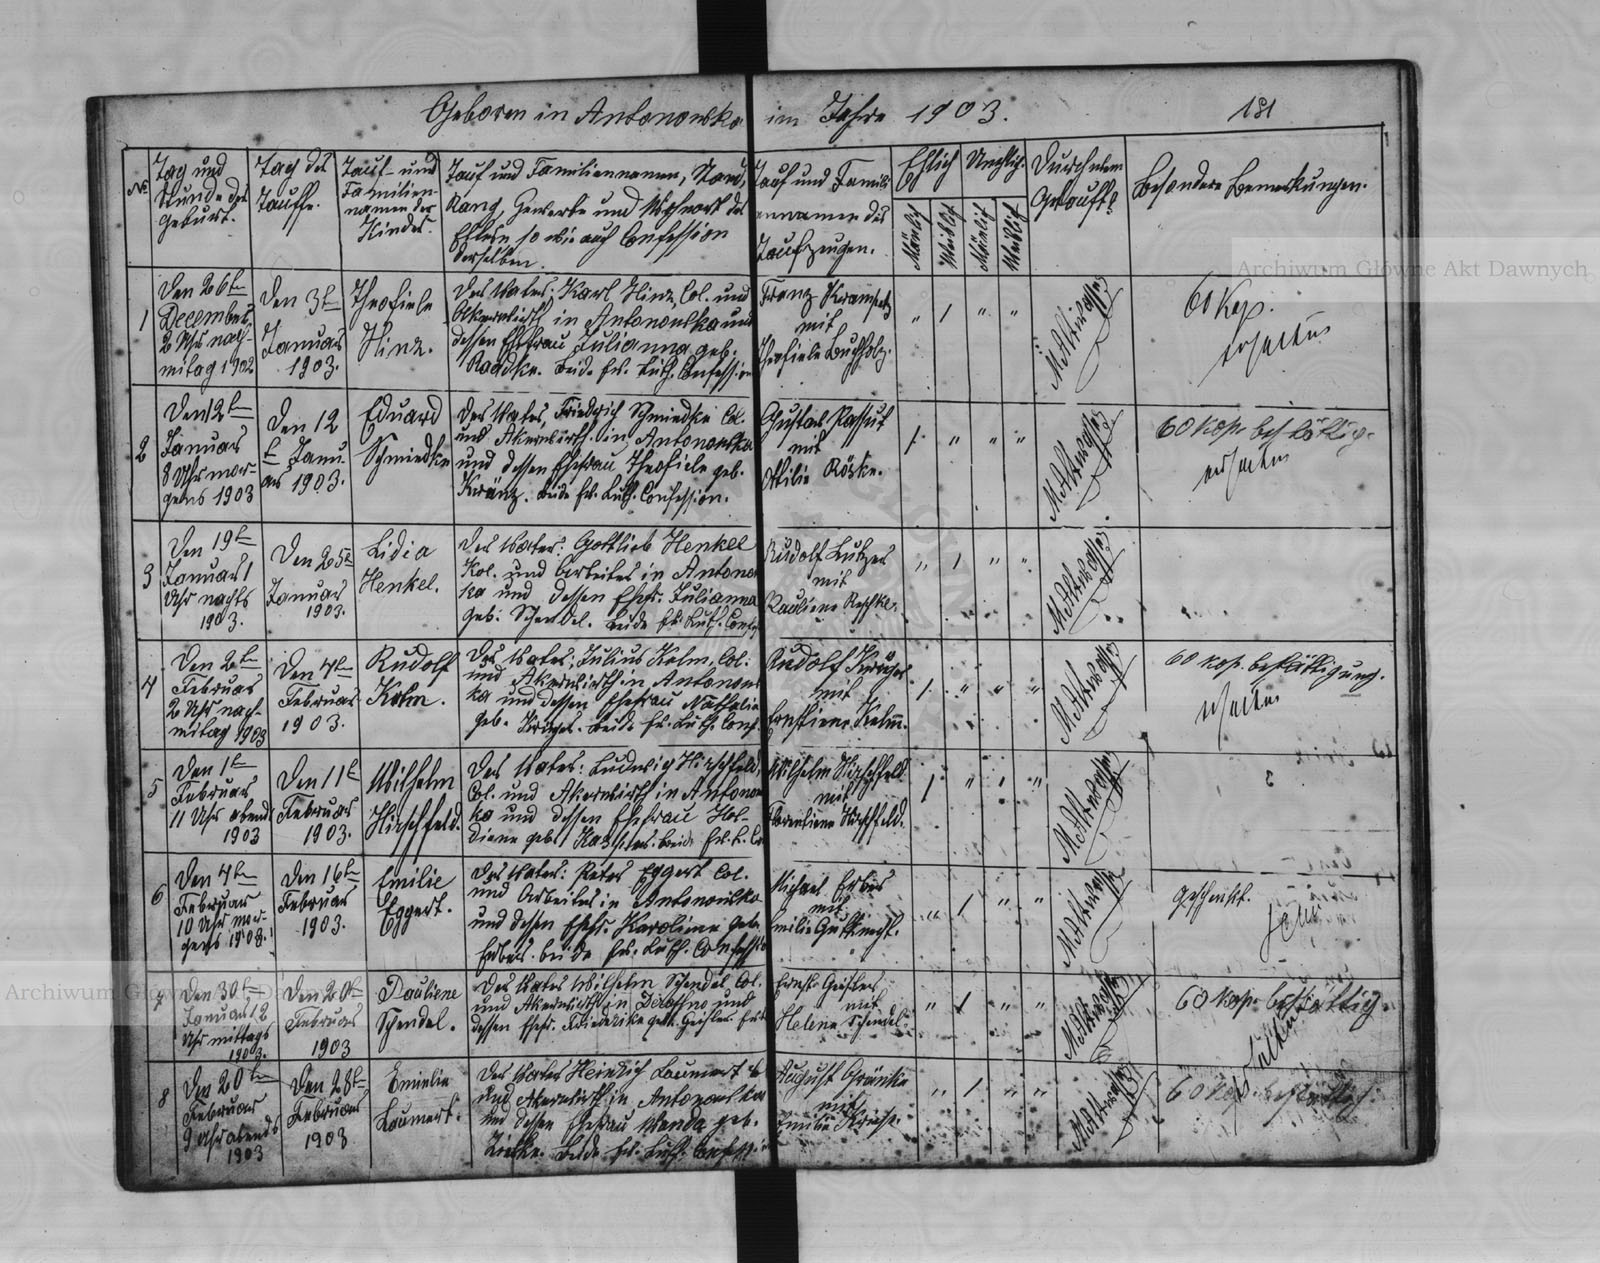 Geboren in Antonowka im Jahre 1903. 181
No
Tag und
Stunde der
Geburt.
Tag der
Tauffe.
Tauf- und
Familien-
namen des
Kindes.
Tauf und Familiennamen, Stand,
Rang, Gewerbe und Wohnort der
Eltern so wie auch Confession
derselben.
Tauf und Famili-
ennamen des
Taufzeugen.
Ehlich
Unehlich.
Mänlich
Weiblich
Mänlich
Weiblich
Durch wem
Getauft?
Besondere Bemerkungen.
1
Den 26ten
December
2 Uhr nach-
mitag 1902
Den 3t
Januar
1903.
Theofiele
Hinz.
Der Vater: Karl Hinz, Col. und
Akerwirth in Antonowka und
dessen Ehefrau Julianna geb.
Raadke. Beide Ev. Luth. Confession
Franz
mit
Theofiele Buchholz.
" 1 " "
60 Kop.
erhalten
2
Den 12t
Januar
8 Uhr mor-
gens 1903
Den 12
t Janu-
ar 1903.
Eduard
Schmiedke
Der Vater, Friedrich Schmiedke Col.
und Akerwirth in Antonowka
und dessen Ehefrau Theofiele geb.
Kränz. Beide Ev. Luth. Confession.
Gustav
mit
Ottilie Röske.
1 " " "
60 Kop. bestätig.
erhalten
3
Den 19t
Januar 1
Uhr nachts
1903.
Den 25t
Januar
1903.
Lidia
Henkel.
Der Vater: Gottlieb Henkel
Kol. und Arbeiter in Antonow
ka und dessen Ehefr. Julianna
geb: Schendel. Beide Ev. Luth. Conf
Rudolf Lutzer
mit
Pauliene Reschke.
" 1 " "
4
Den 2ten
Februar
2 Uhr nach-
mitag 1903
Den 4ten
Februar
1903.
Rudolf
Kelm.
Der Vater, Julius Kelm, Col.
und Akerwirth in Antonow
ka und dessen Ehefrau Nathalie
geb. Krüger. Beide Ev. Luth. Conf.
Rudolf Krüger
mit
Ernstiene Kelm.
1 " " "
60 Kop. bestättigung.
erhalten
5
Den 1t
Februar
11 Uhr abends
1903
Den 11t
Februar
1903.
Wilhelm
Hirschfeld.
Der Vater: Ludwig Hirschfeld,
Col. und Akerwirth in Antonow
ka und dessen Ehefrau
geb. beide Ev. L. Co
Wilhelm Hirschfeld
mit
Florentiene Hirschfeld.
1 " " "
6
Den 4ten
Februar
10 Uhr mor-
gens 1903.
Den 16ten
Februar
1903.
Emilie
Eggert.
Der Vater: Peter Eggert Col.
und Arbeiter in Antonowka
und dessen Ehefr. Karoline geb.
Erber. beide Ev. Luth. Confession
Michael Erber
mit
Emilie Gutknecht.
" 1 " "
Geschenkt.
7
Den 30t
Januar 12
Uhr mittags
1903.
Den 20t
Februar
1903
Pauliene
Schendel.
Der Vater Wilhelm Schendel Col.
und Akerwirth in und
dessen Ehefr. Friederike geb. Geisler.
Ernst Geisler
mit
Helene Schendel.
" 1 " "
60 Kop. bestättig.
8
Den 20t
Februar
9 Uhr abends
1903
Den 28t
Februar
1903
Emielie
Laumert.
Der Vater Heinrich Laumert
und Akerwirth in Antonowka
und dessen Ehefrau Wanda geb.
Zielke. Beide Ev. Luth. Confession
August Gränke
mit
Emilie
" 1 " "
60 Kop. bestättig.
Archiwum Główne Akt Dawnych
Archiwum Główne Akt Dawnych